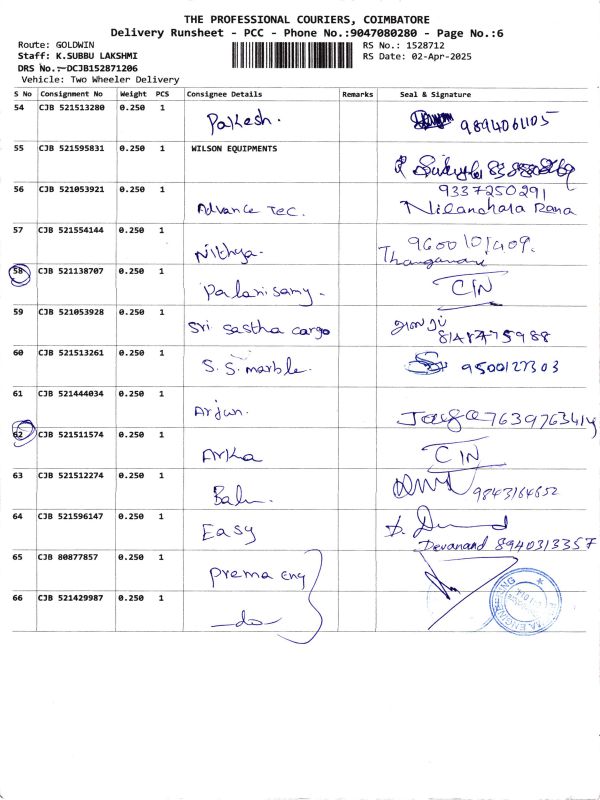 THE PROFESSIONAL COURIERS, COIMBATORE
Delivery Runsheet - PCC - Phone No.:9047080280 - Page No.:6
Route: GOLDWIN
RS No.: 1528712
Staff: K.SUBBU LAKSHMI
RS Date: 02-Apr-2025
DRS No.:-DCJB152871206
Vehicle: Two Wheeler Delivery
S No Consignment No Weight PCS Consignee Details Remarks Seal & Signature
54 CJB 521513280 0.250 1 Pakesh. 9894061105
55 CJB 521595831 0.250 1 WILSON EQUIPMENTS
56 CJB 521053921 0.250 1 Advance Tec. 9337250291
Nilanchala Rana
57 CJB 521554144 0.250 1 Nithya. 9600101409.
Thangamani
58 CJB 521138707 0.250 1 Palanisamy. CIN
59 CJB 521053928 0.250 1 Sri Sastha cargo
60 CJB 521513261 0.250 1 S.S. marble. 9500127303
61 CJB 521444034 0.250 1 Arjun. 7639763414
62 CJB 521511574 0.250 1 Arka CIN
63 CJB 521512274 0.250 1 Balu. 9843164652
64 CJB 521596147 0.250 1 Easy D.
Devanand 8940313357
65 CJB 80877857 0.250 1 Prema eng
66 CJB 521429987 0.250 1 -do-